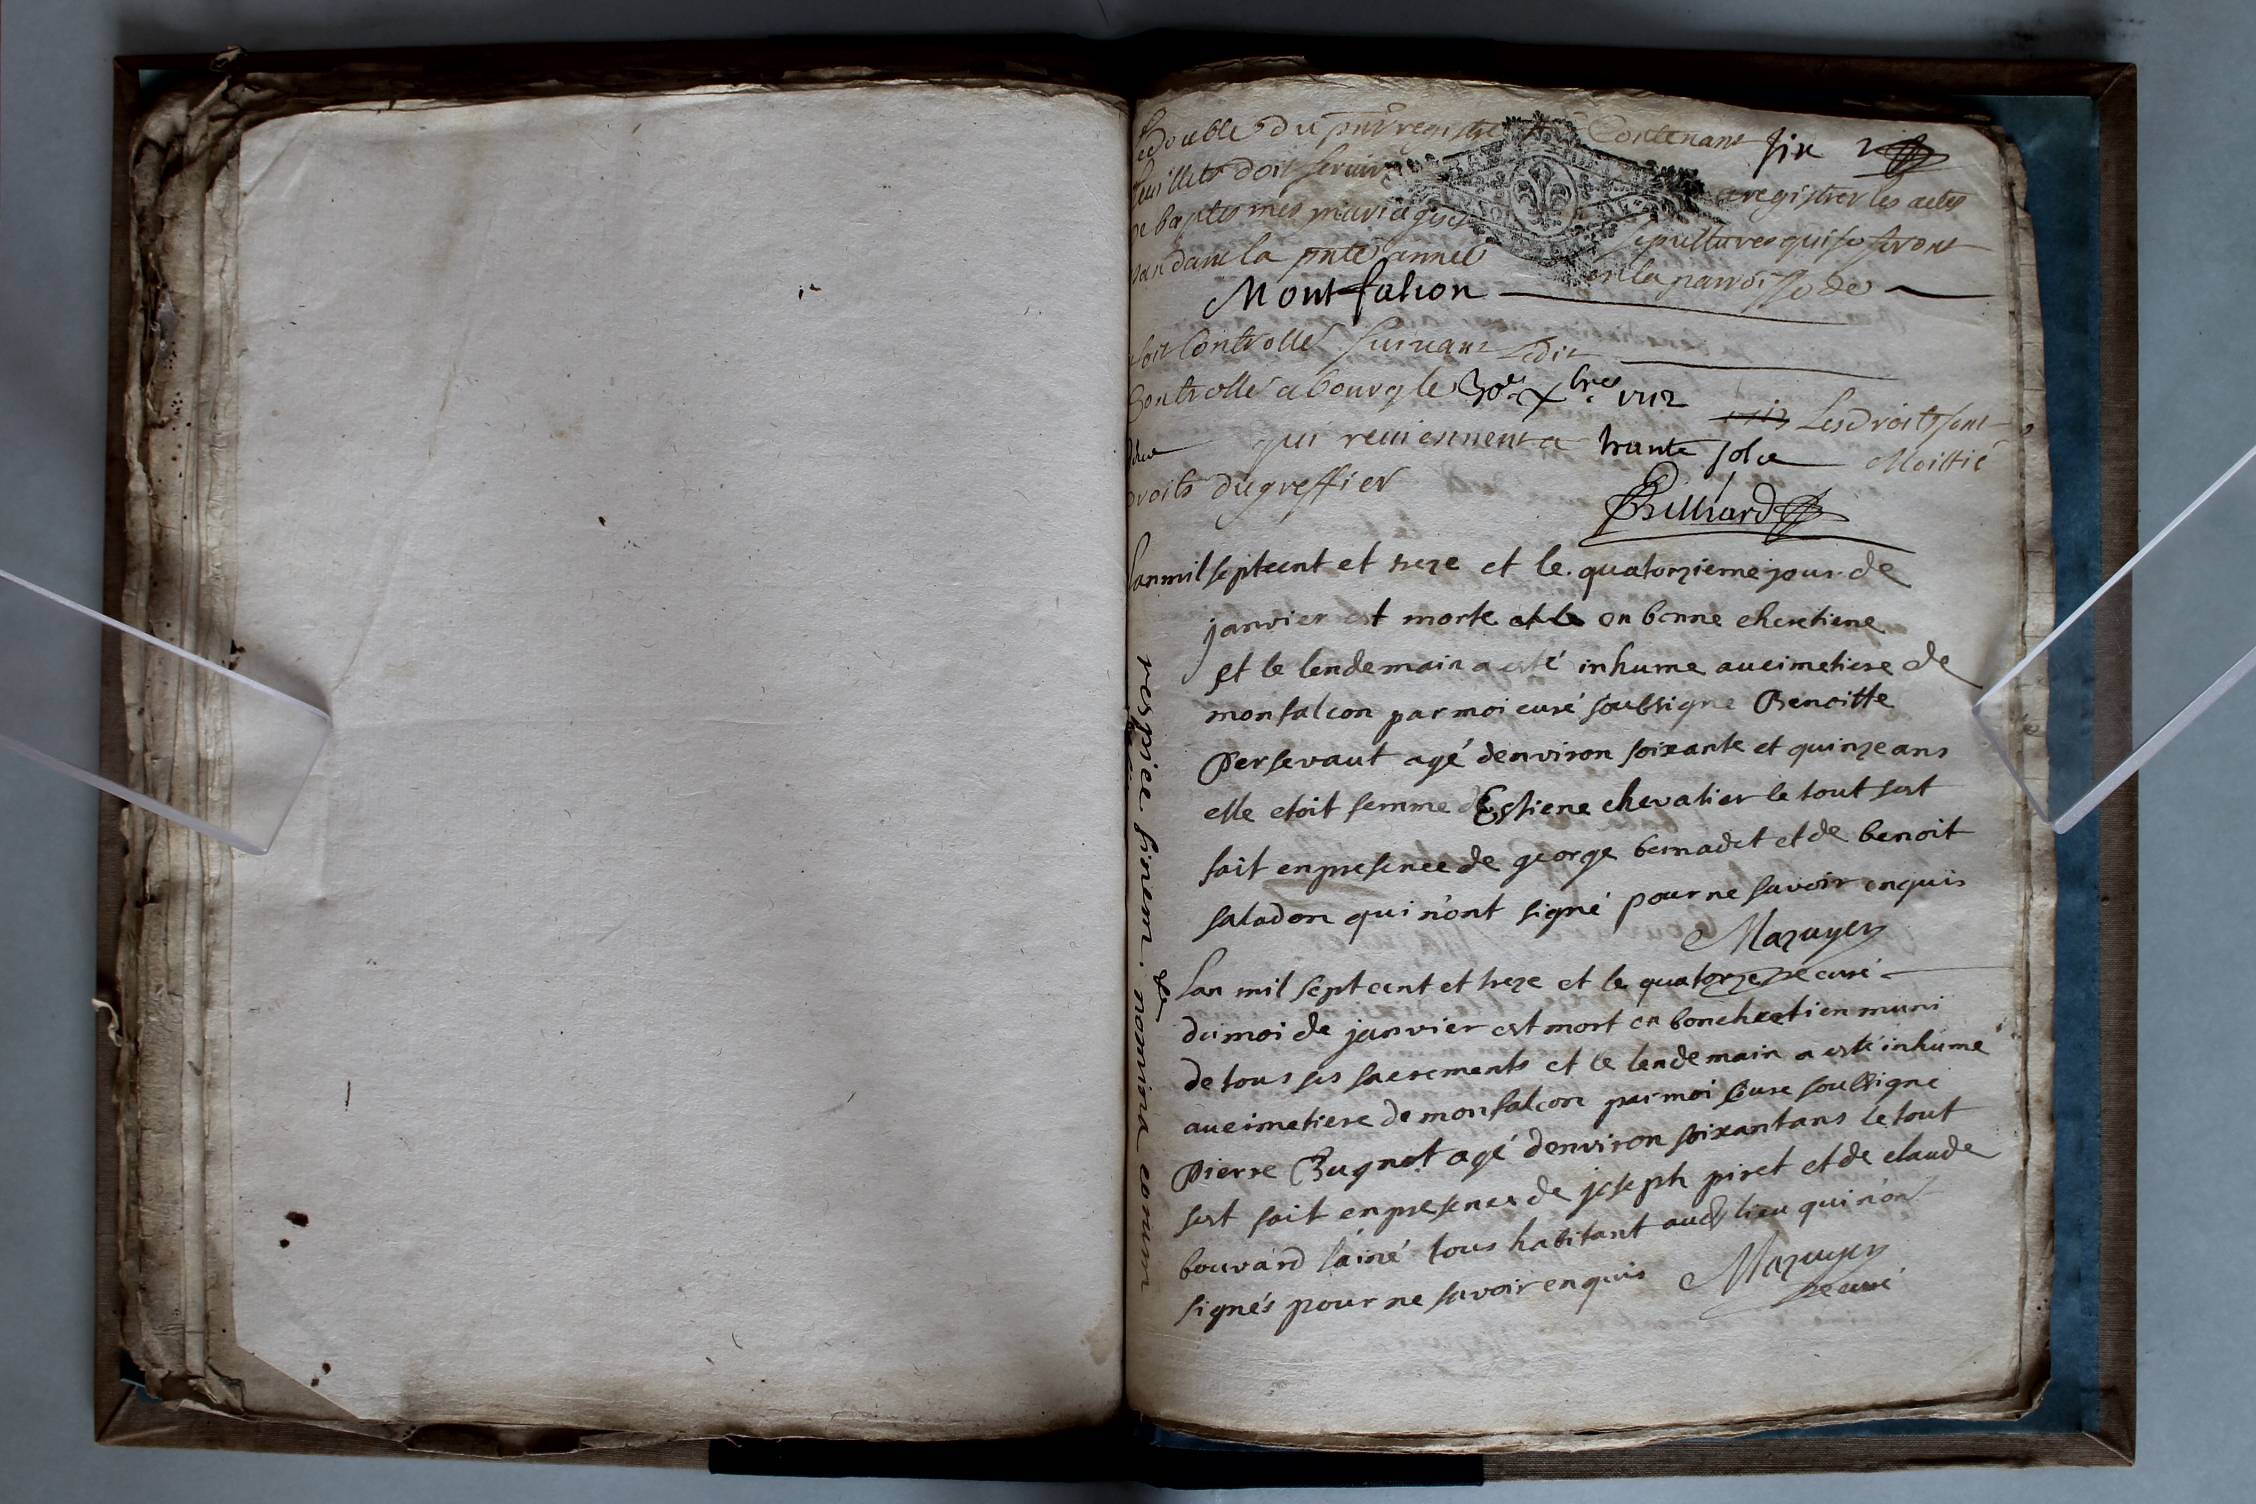 Le double du pnt registre Contenant six
feuillets doit servir enregistrer les actes
de baptesmes mariages sepultures qui se feront
pandant la pnte année en la parroisse de
Montfalcon
soit Controllé suivant Ledit
Controllé a bourg le 30e Xbre 1712 Les droits sont
qui reviennent a trante sols Moittié
droits du greffier
Billiard
Lan mil septcent et treze et le quatorzieme jour de
janvier est morte en bonne chretiene
et le lendemain a esté inhume au cimetiere de
monfalcon par moi curé soubsigne Benoitte
Persevaut agé denviron soixante et quinze ans
elle etoit femme dEstiene chevalier le tout sest
fait en presence de george bernadet et de benoit
saladon qui n'ont signé pour ne savoir enquis
Mazuyer
curé
Lan mil sept cent et treze et le quatorze
du moi de janvier est mort en bon chretien muni
de tous ses sacrements et le lendemain a esté inhumé
au cimetiere de monfalcon par moi Cure soubsigné
Pierre Bugnot agé denviron soixantans le tout
sest fait en presence de joseph piret et de claude
bouvard lainé tous habitant aud lieu qui n'ont
signés pour ne savoir enquis Mazuyer
curé
respice finem nomina eorum